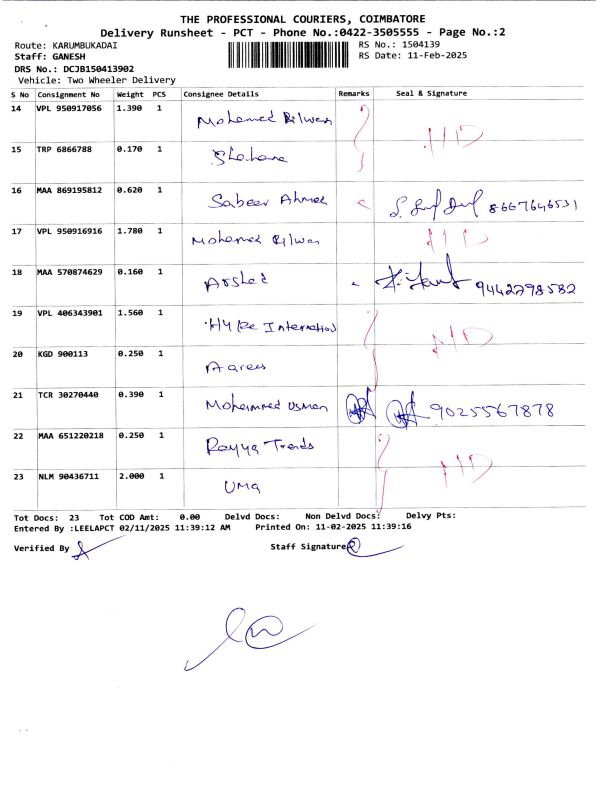 THE PROFESSIONAL COURIERS, COIMBATORE
Delivery Runsheet - PCT - Phone No.:0422-3505555 - Page No.:2
Route: KARUMBUKADAI RS No.: 1504139
Staff: GANESH RS Date: 11-Feb-2025
DRS No.: DCJB150413902
Vehicle: Two Wheeler Delivery
S No Consignment No Weight PCS Consignee Details Remarks Seal & Signature
14 VPL 950917056 1.390 1 Mohamed Rilwan
15 TRP 6866788 0.170 1 Shahana
16 MAA 869195812 0.620 1 Sabeer Ahmed 8667646531
17 VPL 950916916 1.780 1 Mohamed Rilwan
18 MAA 570874629 0.160 1 Arshad 9442798582
19 VPL 406343901 1.560 1 Hype International
20 KGD 900113 0.250 1
21 TCR 30270440 0.390 1 Mohammed Usman 9025567878
22 MAA 651220218 0.250 1 Rayya Trends
23 NLM 90436711 2.000 1 Uma
Tot Docs: 23 Tot COD Amt: 0.00 Delvd Docs: Non Delvd Docs: Delvy Pts:
Entered By :LEELAPCT 02/11/2025 11:39:12 AM Printed On: 11-02-2025 11:39:16
Verified By Staff Signature